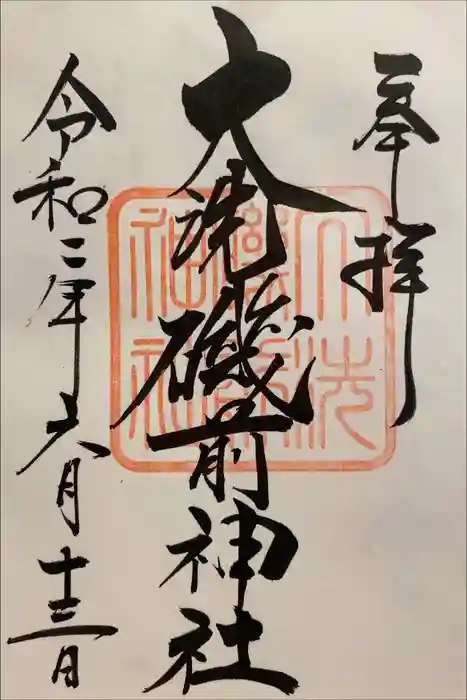 奉拝
大洗磯前神社
大洗
磯前
神社
令和二年六月十三日